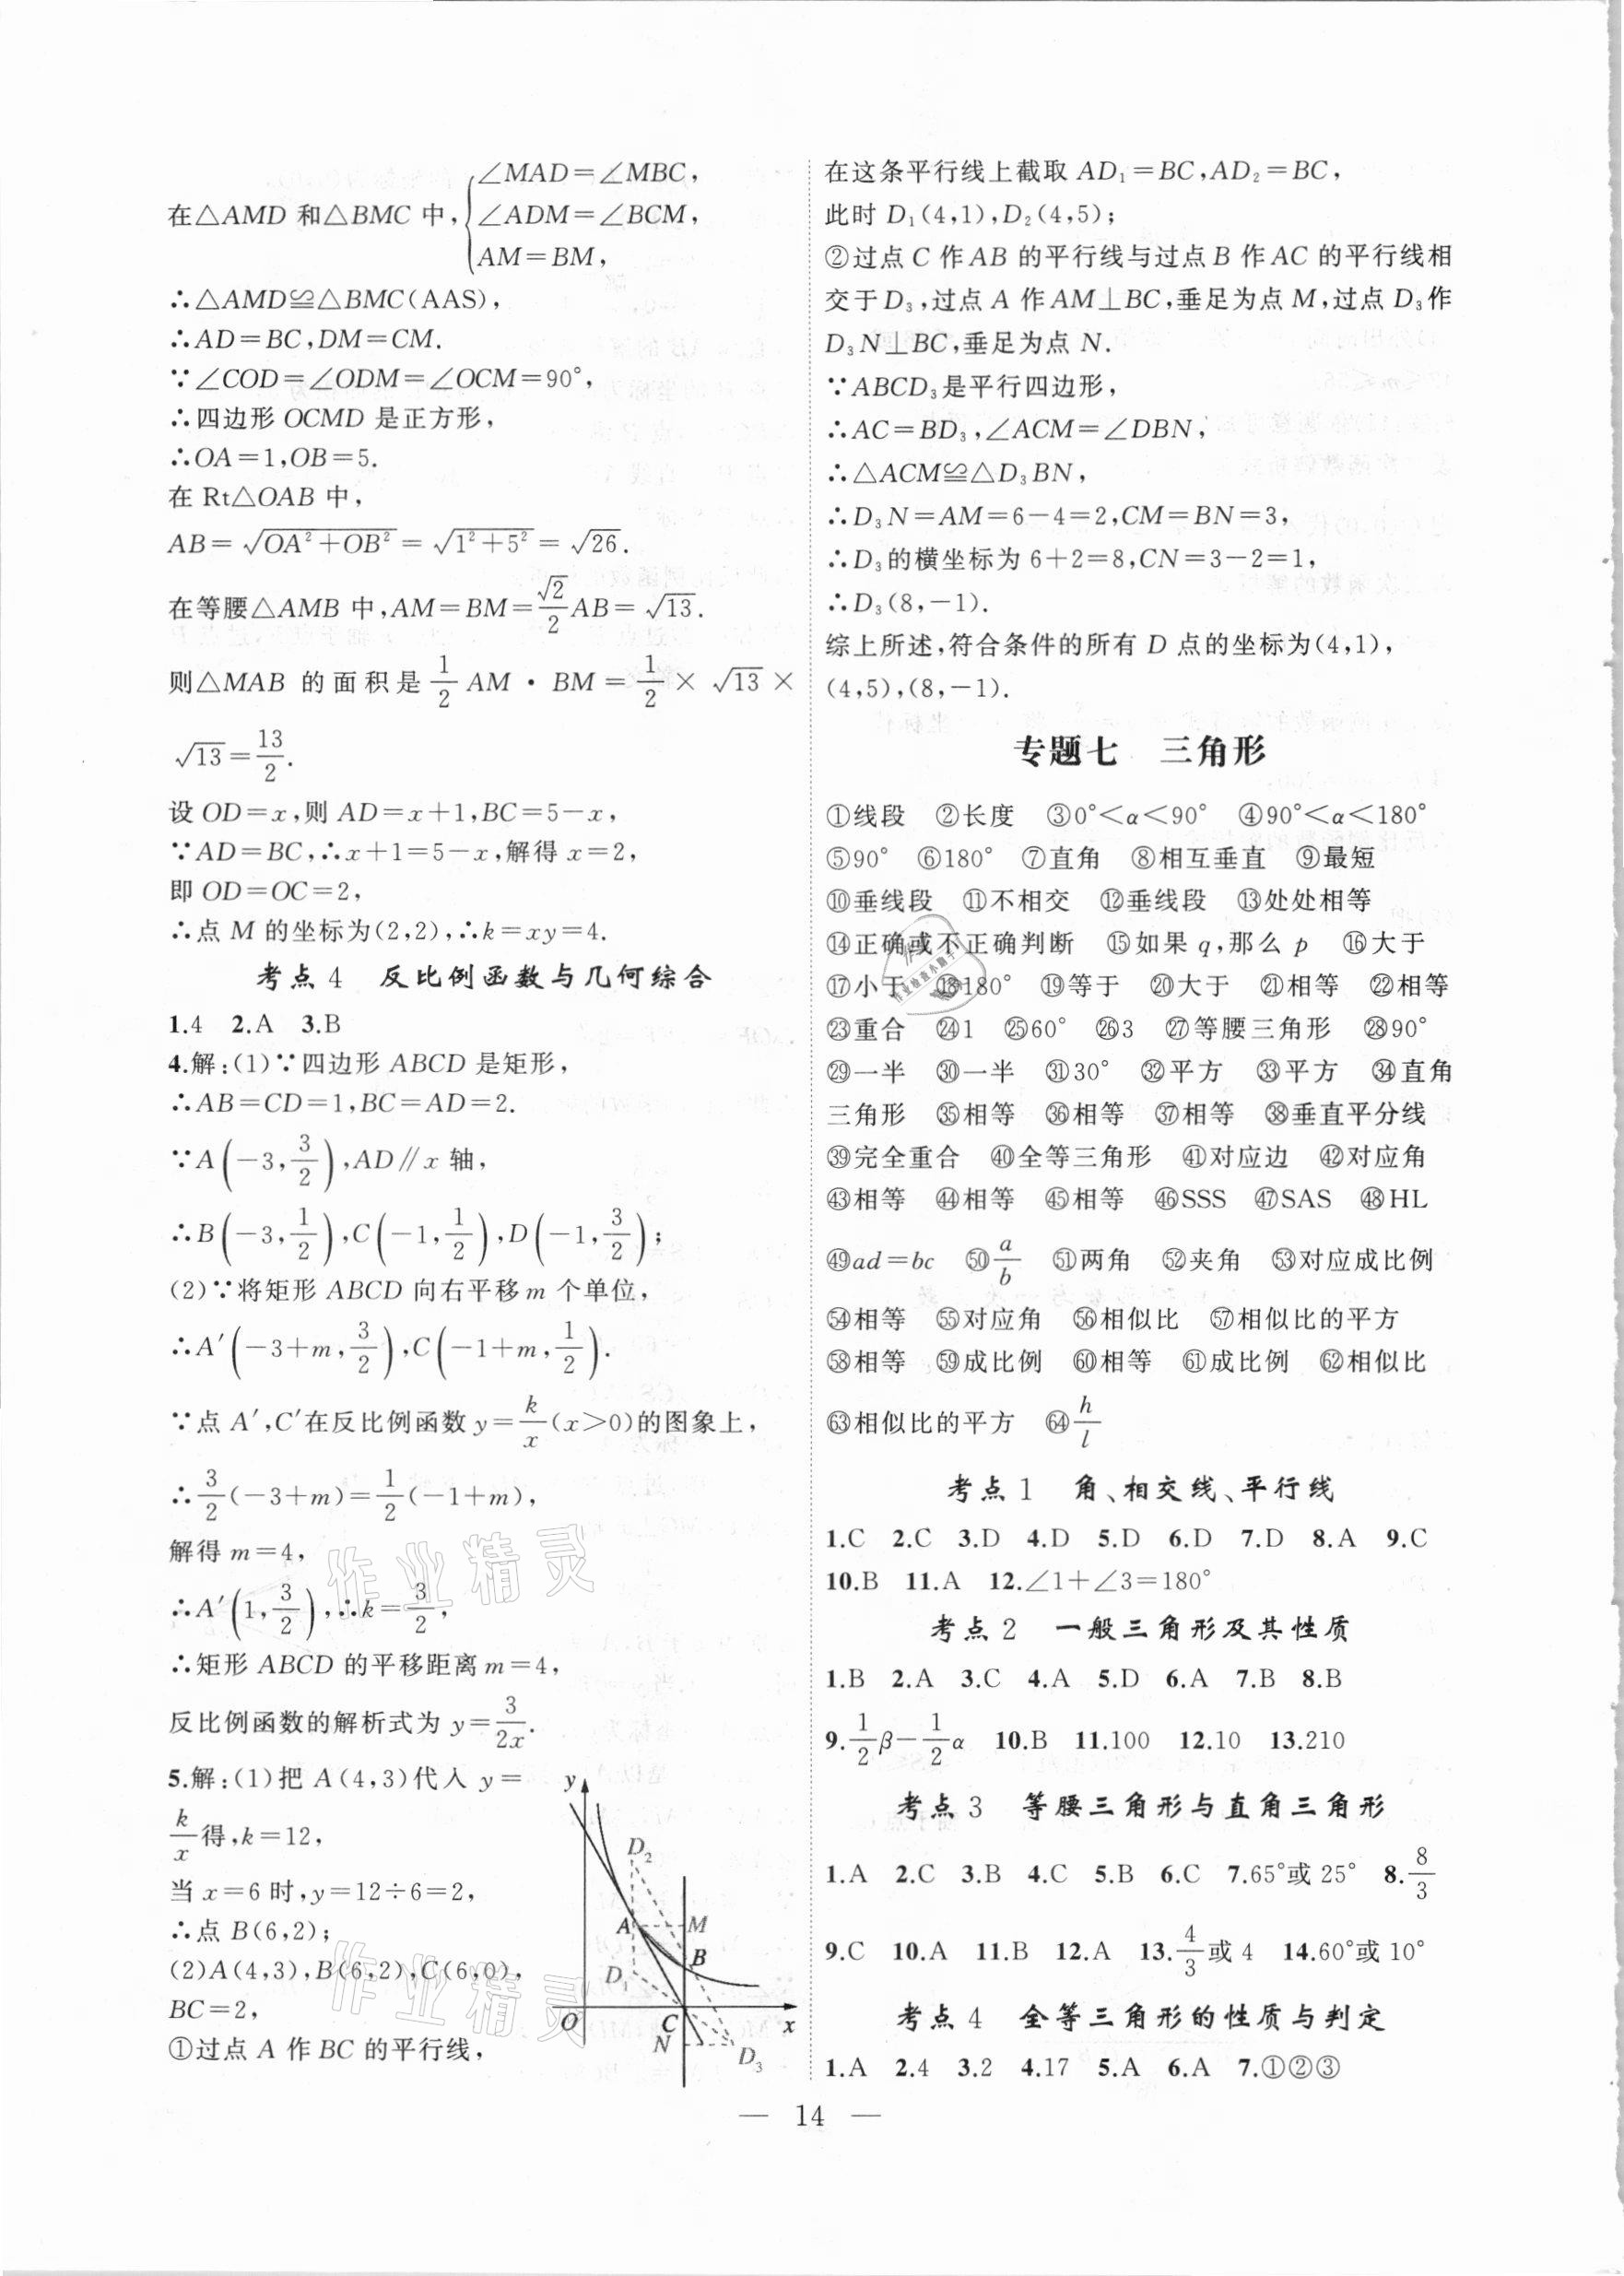 在△AMD 和△BMC 中,{∠MAD=∠MBC,
∠ADM=∠BCM,
AM=BM,
∴△AMD≌△BMC(AAS),
∴AD=BC,DM=CM.
∵∠COD=∠ODM=∠OCM=90°,
∴四边形 OCMD 是正方形,
∴OA=1,OB=5.
在 Rt△OAB 中,
AB=√(OA²+OB²)=√(1²+5²)=√26.
在等腰△AMB 中,AM=BM=√2/2 AB=√13.
则△MAB 的面积是 1/2 AM·BM=1/2×√13×
√13=13/2.
设 OD=x,则 AD=x+1,BC=5-x,
∵AD=BC,∴x+1=5-x,解得 x=2,
即 OD=OC=2,
∴点 M 的坐标为(2,2),∴k=xy=4.
考点 4 反比例函数与几何综合
1.4 2.A 3.B
4.解:(1)∵四边形 ABCD 是矩形,
∴AB=CD=1,BC=AD=2.
∵A(-3,3/2),AD∥x 轴,
∴B(-3,1/2),C(-1,1/2),D(-1,3/2);
(2)∵将矩形 ABCD 向右平移 m 个单位,
∴A′(-3+m,3/2),C(-1+m,1/2).
∵点 A′,C′在反比例函数 y=k/x(x>0)的图象上,
∴3/2(-3+m)=1/2(-1+m),
解得 m=4,
∴A′(1,3/2),∴k=3/2,
∴矩形 ABCD 的平移距离 m=4,
反比例函数的解析式为 y=3/2x.
5.解:(1)把 A(4,3)代入 y=
k/x得,k=12,
当 x=6 时,y=12÷6=2,
∴点 B(6,2);
(2)A(4,3),B(6,2),C(6,0),
BC=2,
①过点 A 作 BC 的平行线,
y
D₂
A
M
B
D₁
O
C
x
N
D₃
在这条平行线上截取 AD₁=BC,AD₂=BC,
此时 D₁(4,1),D₂(4,5);
②过点 C 作 AB 的平行线与过点 B 作 AC 的平行线相
交于 D₃,过点 A 作 AM⊥BC,垂足为点 M,过点 D₃作
D₃N⊥BC,垂足为点 N.
∵ABCD₃是平行四边形,
∴AC=BD₃,∠ACM=∠DBN,
∴△ACM≌△D₃BN,
∴D₃N=AM=6-4=2,CM=BN=3,
∴D₃的横坐标为 6+2=8,CN=3-2=1,
∴D₃(8,-1).
综上所述,符合条件的所有 D 点的坐标为(4,1),
(4,5),(8,-1).
专题七 三角形
①线段 ②长度 ③0°<α<90° ④90°<α<180°
⑤90° ⑥180° ⑦直角 ⑧相互垂直 ⑨最短
⑩垂线段 ⑪不相交 ⑫垂线段 ⑬处处相等
⑭正确或不正确判断 ⑮如果 q,那么 p ⑯大于
⑰小于 ⑱180° ⑲等于 ⑳大于 ㉑相等 ㉒相等
㉓重合 ㉔1 ㉕60° ㉖3 ㉗等腰三角形 ㉘90°
㉙一半 ㉚一半 ㉛30° ㉜平方 ㉝平方 ㉞直角
三角形 ㉟相等 ㊱相等 ㊲相等 ㊳垂直平分线
㊴完全重合 ㊵全等三角形 ㊶对应边 ㊷对应角
㊸相等 ㊹相等 ㊺相等 ㊻SSS ㊼SAS ㊽HL
㊾ad=bc ㊿a/b (51)两角 (52)夹角 (53)对应成比例
(54)相等 (55)对应角 (56)相似比 (57)相似比的平方
(58)相等 (59)成比例 (60)相等 (61)成比例 (62)相似比
(63)相似比的平方 (64)h/l
考点 1 角、相交线、平行线
1.C 2.C 3.D 4.D 5.D 6.D 7.D 8.A 9.C
10.B 11.A 12.∠1+∠3=180°
考点 2 一般三角形及其性质
1.B 2.A 3.C 4.A 5.D 6.A 7.B 8.B
9.1/2β-1/2α 10.B 11.100 12.10 13.210
考点 3 等腰三角形与直角三角形
1.A 2.C 3.B 4.C 5.B 6.C 7.65°或 25° 8.8/3
9.C 10.A 11.B 12.A 13.4/3或 4 14.60°或 10°
考点 4 全等三角形的性质与判定
1.A 2.4 3.2 4.17 5.A 6.A 7.①②③
— 14 —
作业精灵
作业精灵